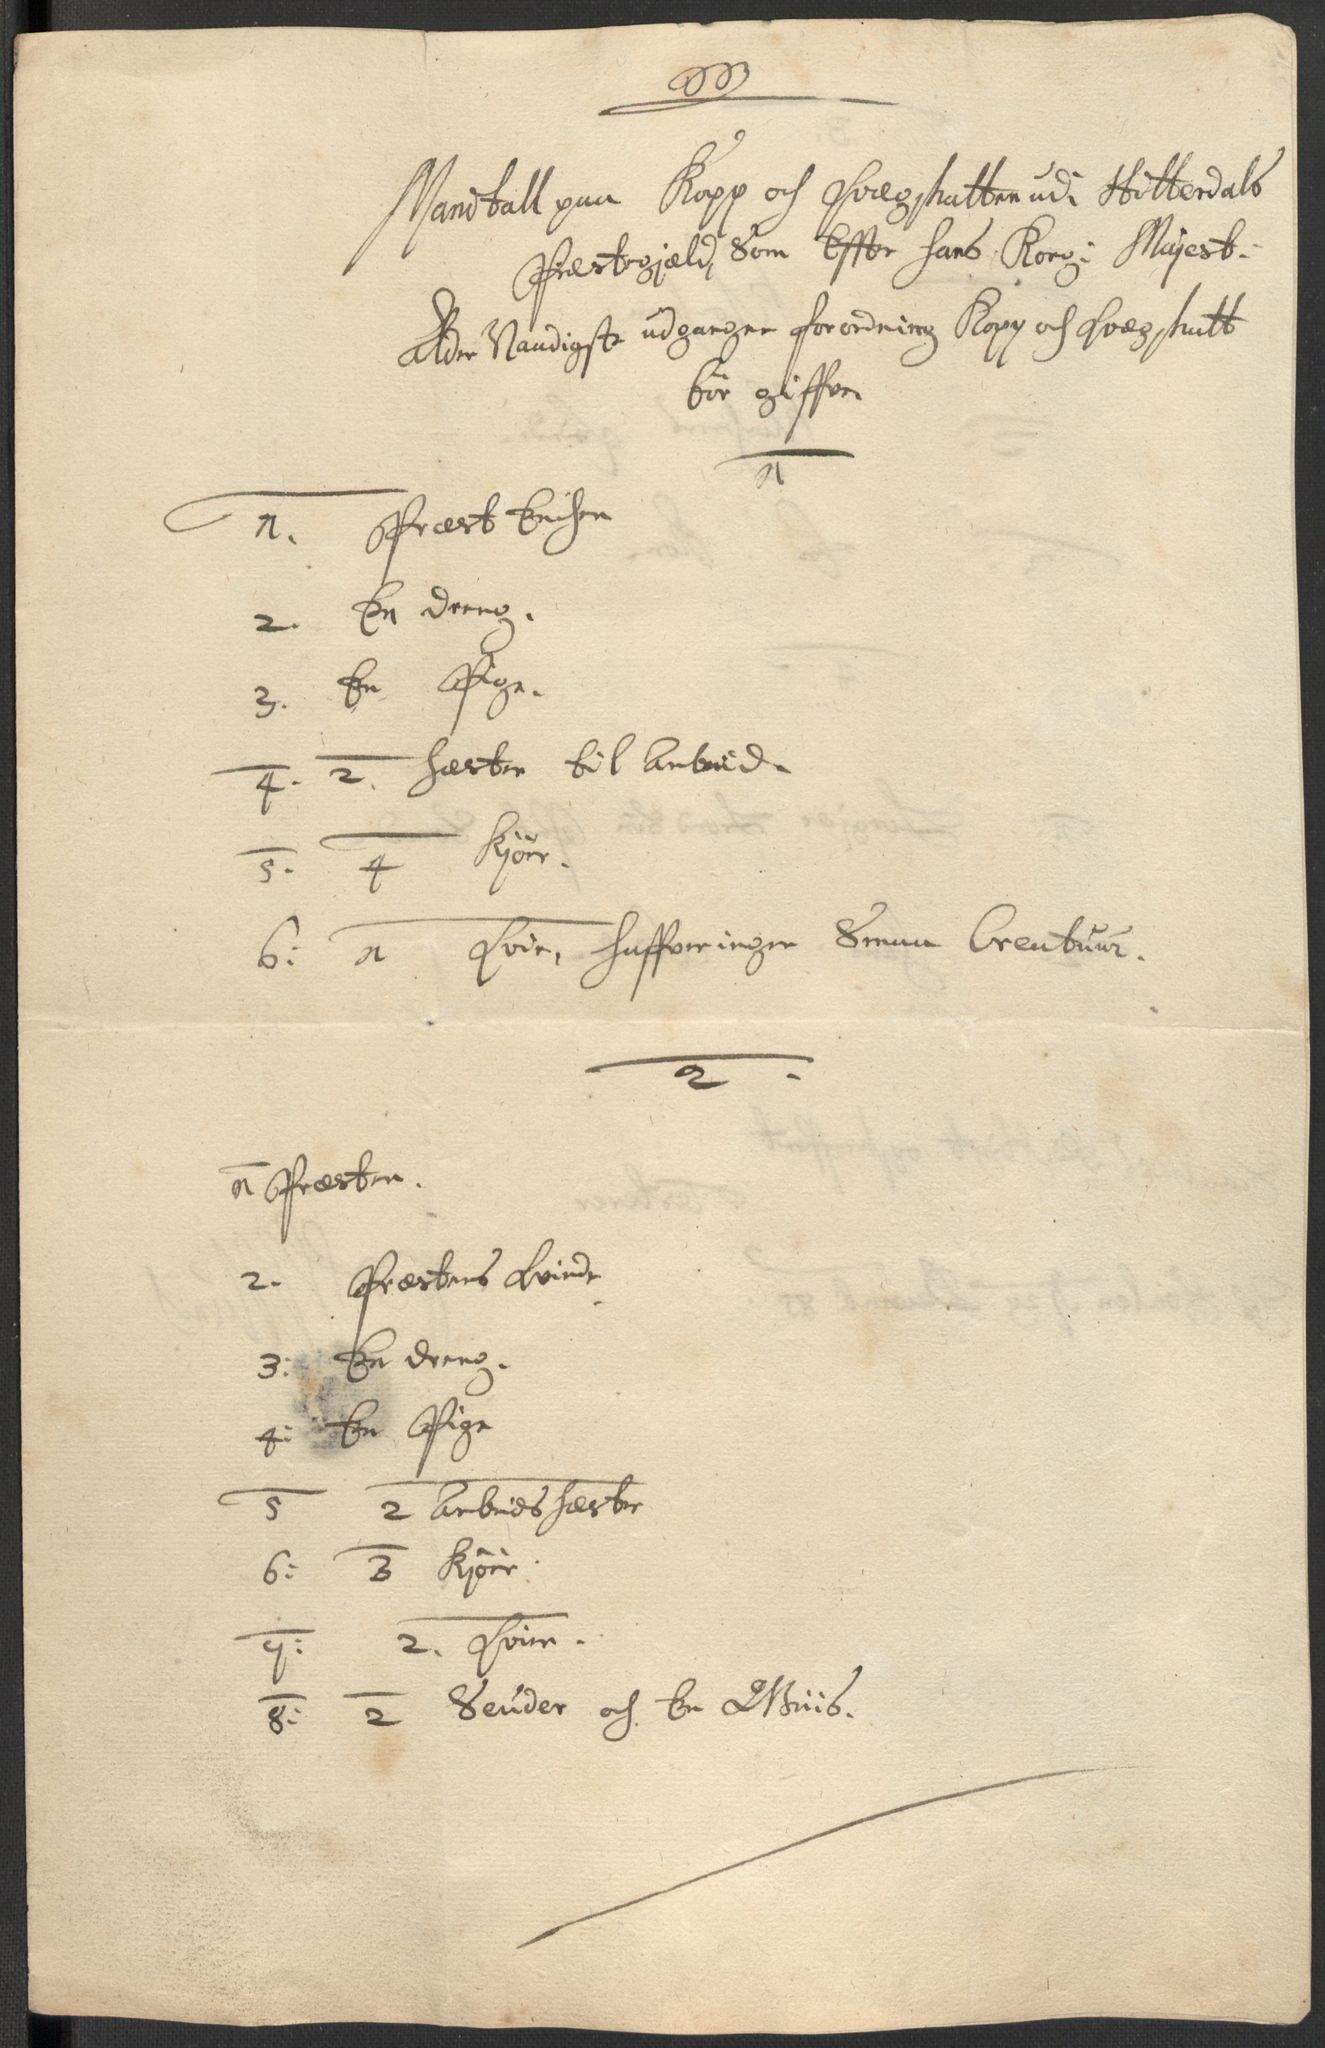 Mandtall paa Kopp och Qvægskatten udi Hitterdals
Præstegjeld, Som Effter Hans Kong: Mayest:
Alder Naadigste udgangne forordning Kopp och Qvægskatt
bör giffve
1
1. Præst Enchen
2. En dreng.
3. En Pige.
4. 2. Hæster til Arbeid.
5. 4 Kjöer.
6: 1 Qvie, Haffver ingen Smaa Creatuur.
2.
1 Præsten.
2. Præstens Qvinde
3: En dreng.
4: En Pige
5 2 Arbeids Hæster
6: 3 Kjöer.
7: 2. Qvier.
8: 2 Seuder och En